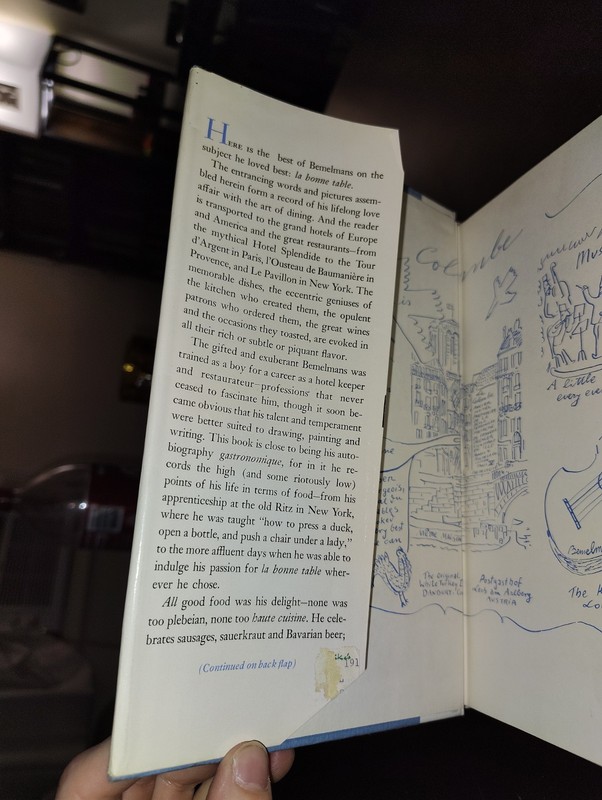 HERE is the best of Bemelmans on the
subject he loved best: la bonne table.
The entrancing words and pictures assem-
bled herein form a record of his lifelong love
affair with the art of dining. And the reader
is transported to the grand hotels of Europe
and America and the great restaurants—from
the mythical Hotel Splendide to the Tour
d'Argent in Paris, l'Ousteau de Baumanière in
Provence, and Le Pavillon in New York. The
memorable dishes, the eccentric geniuses of
the kitchen who created them, the opulent
patrons who ordered them, the great wines
and the occasions they toasted, are evoked in
all their rich or subtle or piquant flavor.
The gifted and exuberant Bemelmans was
trained as a boy for a career as a hotel keeper
and restaurateur—professions that never
ceased to fascinate him, though it soon be-
came obvious that his talent and temperament
were better suited to drawing, painting and
writing. This book is close to being his auto-
biography gastronomique, for in it he re-
cords the high (and some riotously low)
points of his life in terms of food—from his
apprenticeship at the old Ritz in New York,
where he was taught "how to press a duck,
open a bottle, and push a chair under a lady,"
to the more affluent days when he was able to
indulge his passion for la bonne table wher-
ever he chose.
All good food was his delight—none was
too plebeian, none too haute cuisine. He cele-
brates sausages, sauerkraut and Bavarian beer;
(Continued on back flap)
191
Colombe
A little
every eve
The original
Postgasthof
am Arlberg
AUSTRIA
Bemelm
The